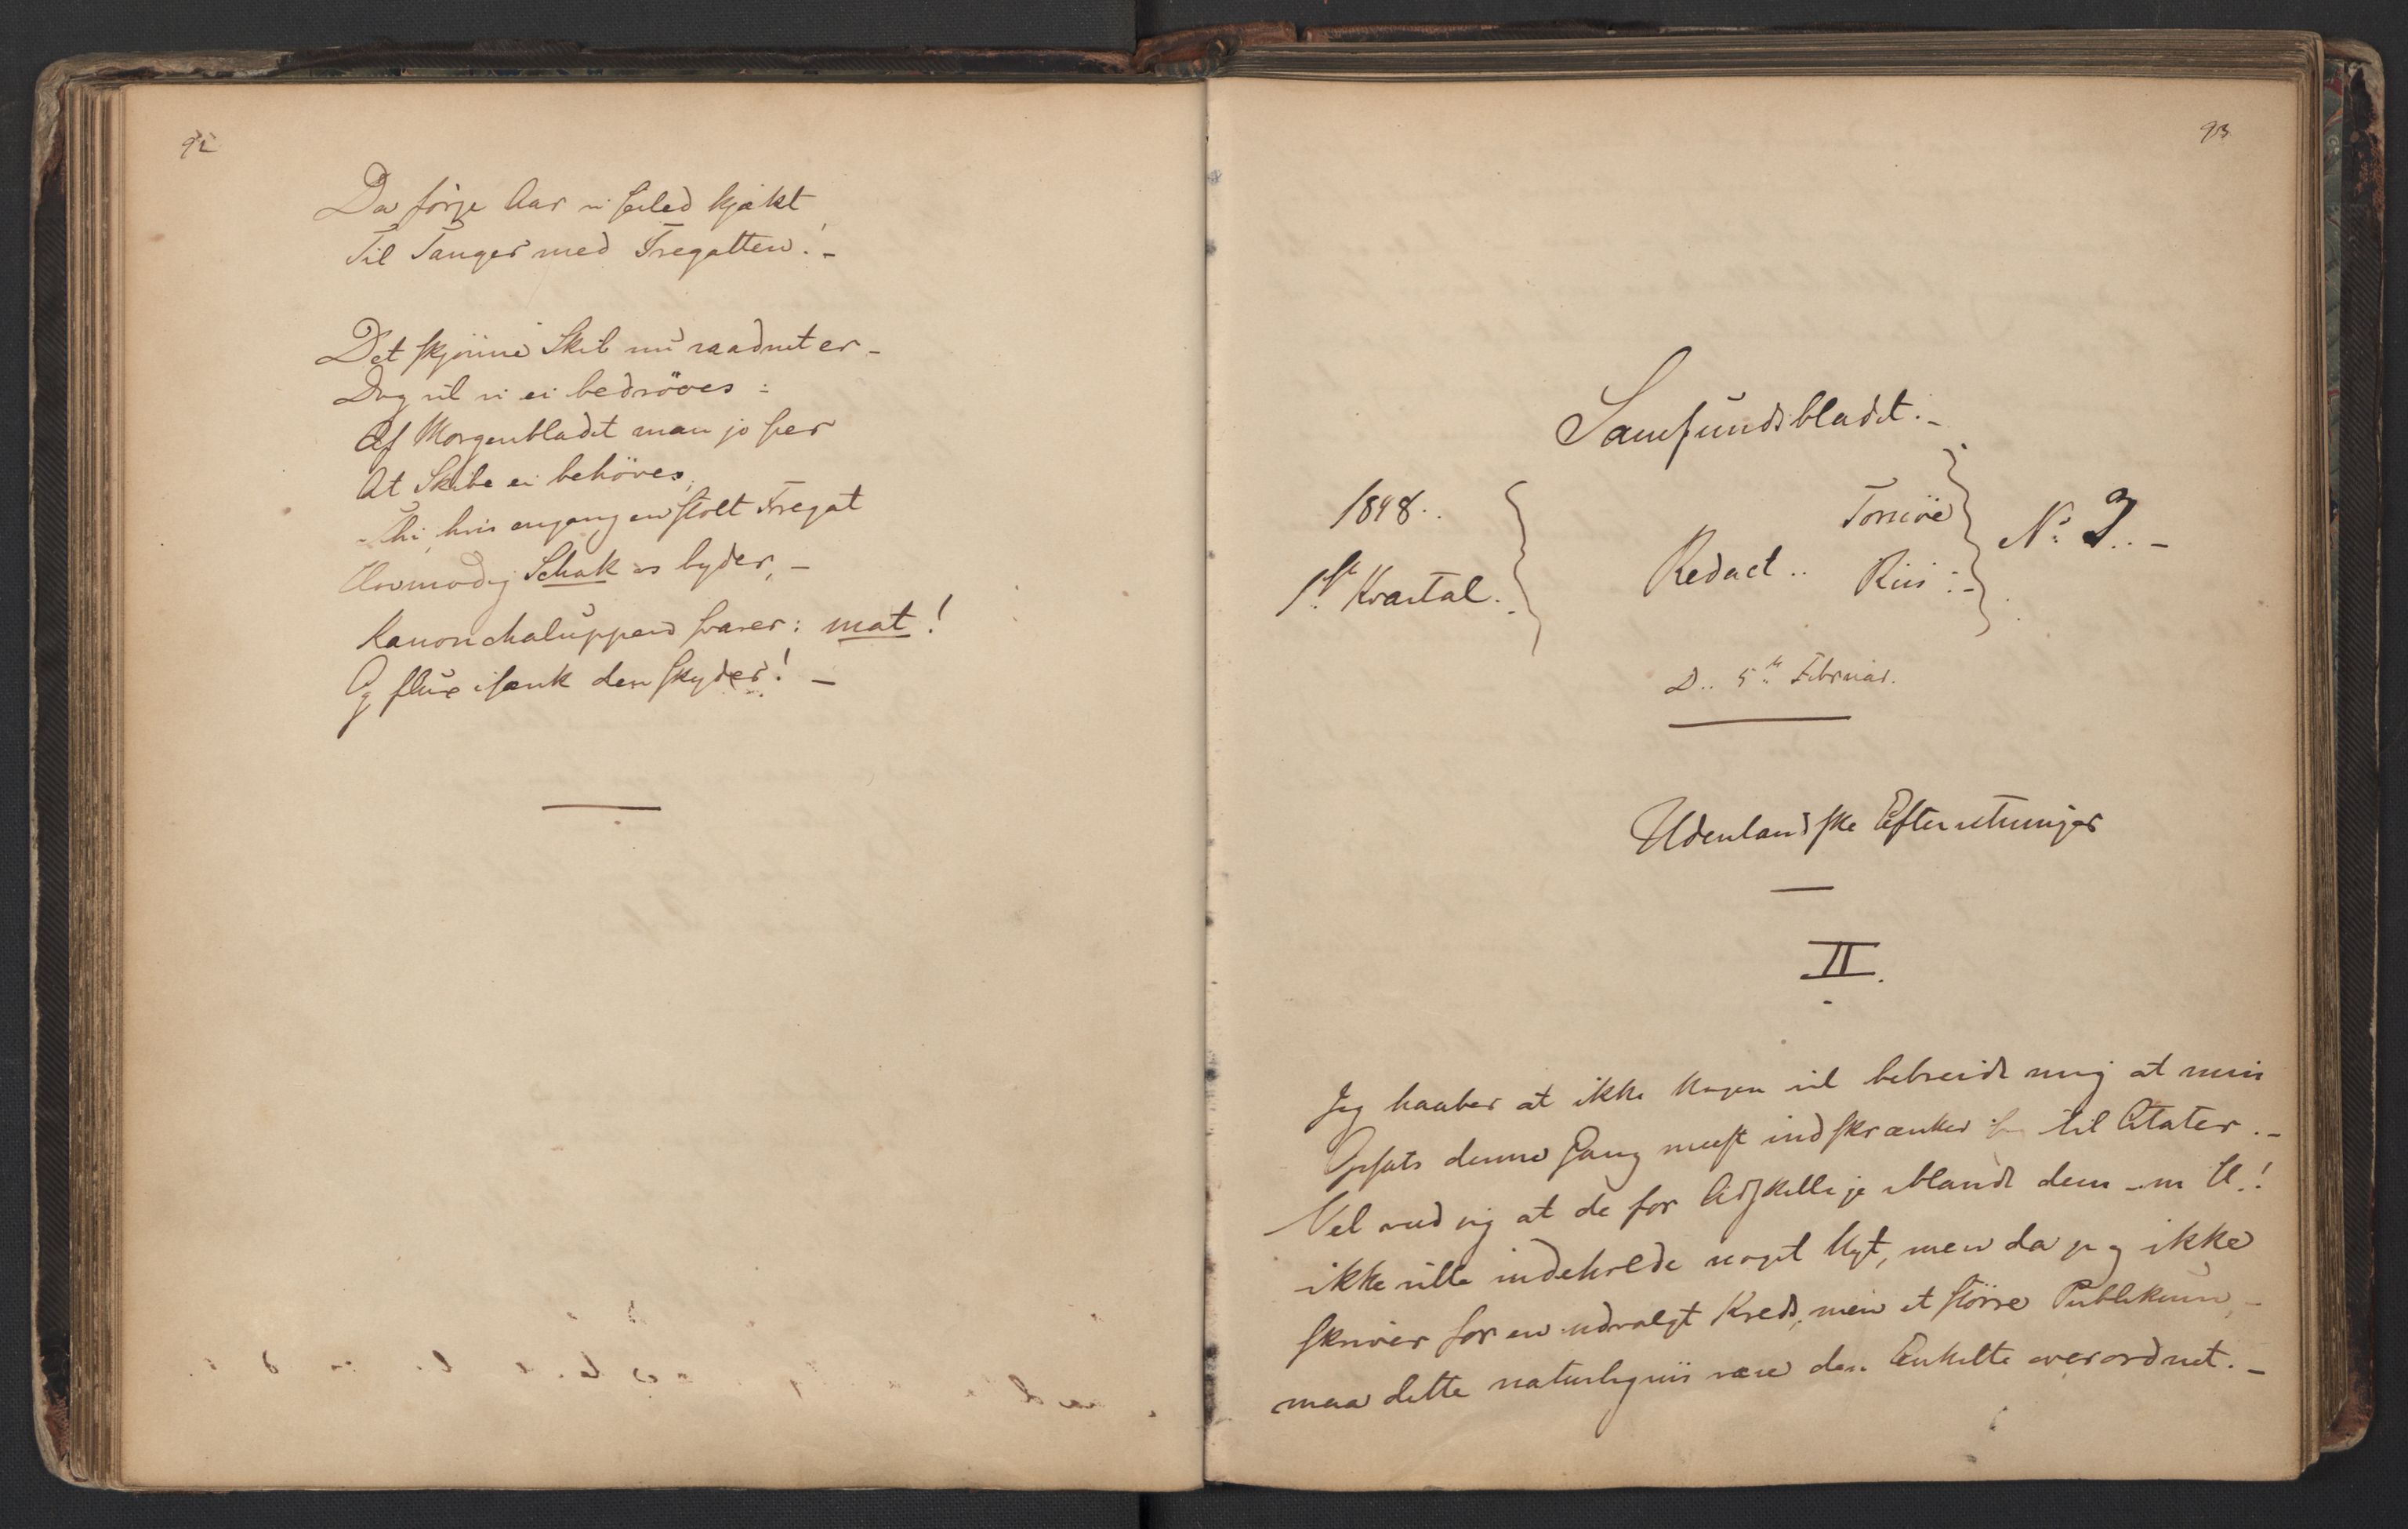 92
Da förje Aar vi seiled kjækt
Til Tanger med Fregatten! -
Det skjönne Skib nu raadnet er -
Dog vil vi ei bedröves:
Af Morgenbladet man jo seer
At Skibe ei behöves,
Thi, hvis engang en stolt Fregat
Hovmodig Schak os byder, -
Kanonchaluppen svarer: mat!
Og flux isænk den skyder! -
93
Samfundsbladet. -
1848.
1ste Kvartal.
Redact..
Tornöe
Riis :-
No: 3.. -
D.. 5te Februar.
Udenlandske Efterretninger
II.
Jeg haaber at ikke Nogen vil bebreide mig at min
Opsats denne Gang meest indskrænker sig til Citater. -
Vel veed jeg at de for Adskillige iblandt dem
ikke ville indeholde noget Nyt, men da jeg ikke
skriver for en udvalgt Kreds, men et större Publikum, -
maa dette naturligviis være den Enkelte overordnet. -